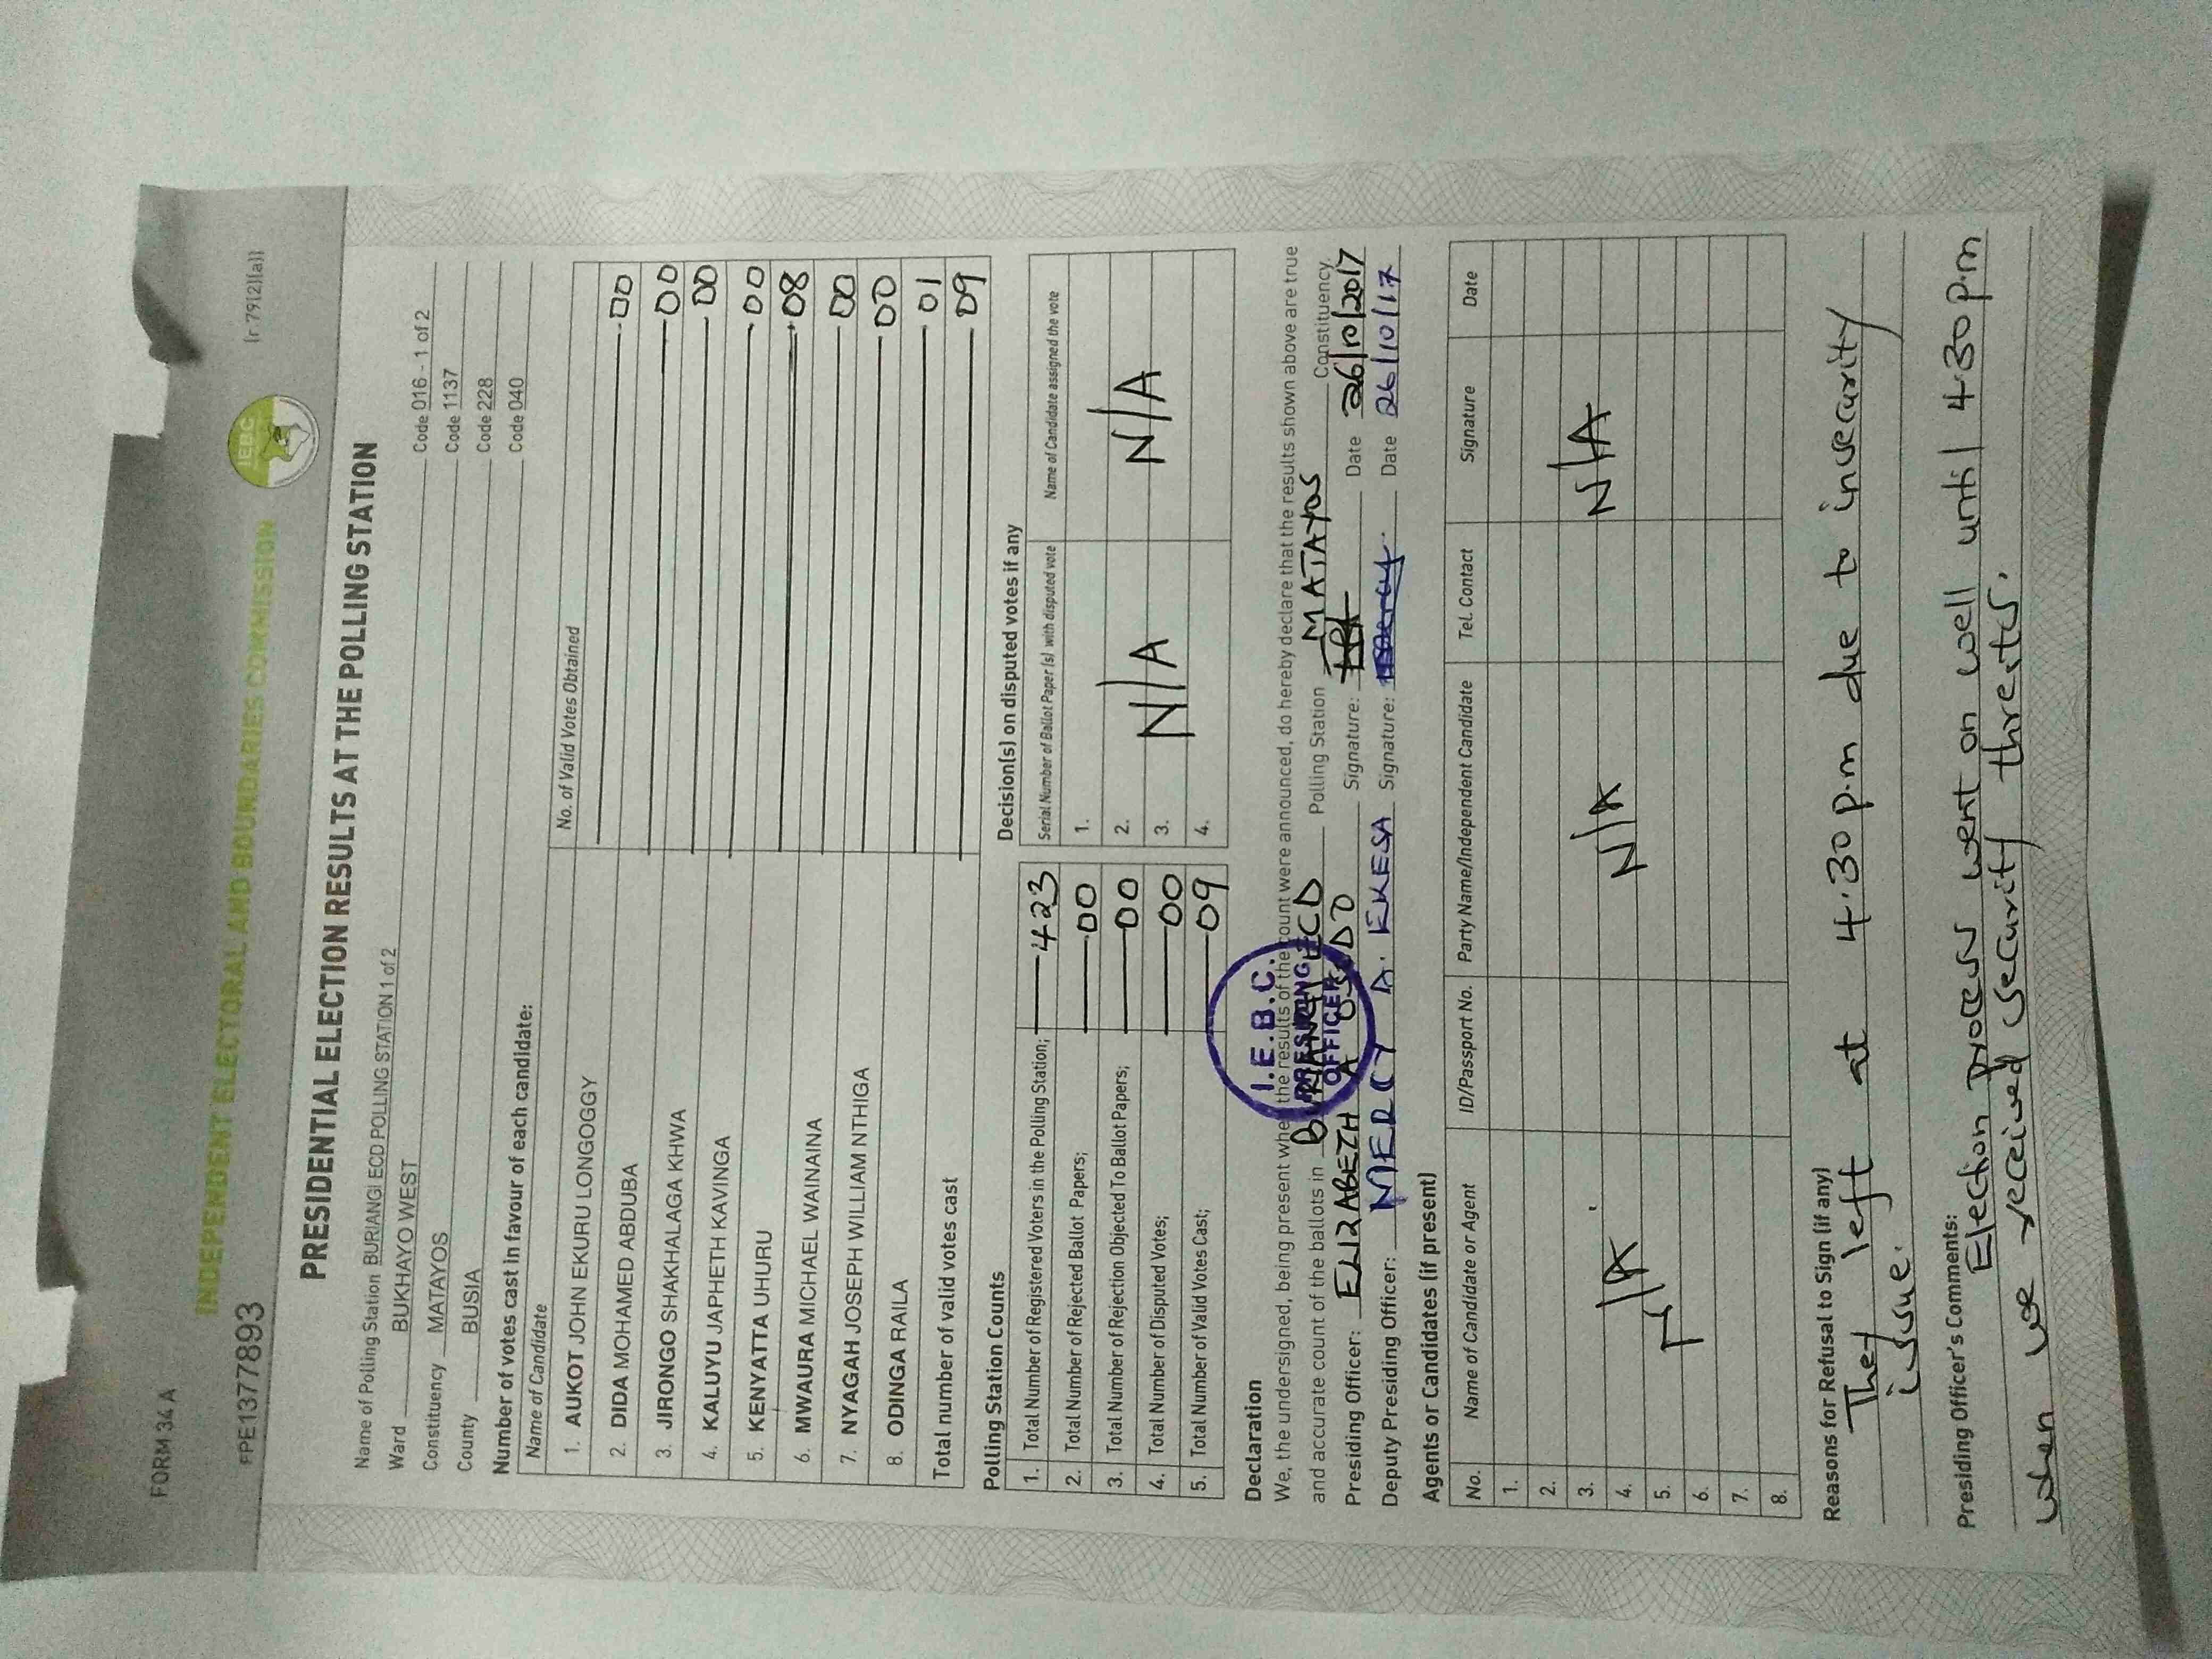 FORM 34 A
(r 79(2)(a))
FPE1377893
IEBC
INDEPENDENT ELECTORAL AND BOUNDARIES COMMISSION
PRESIDENTIAL ELECTION RESULTS AT THE POLLING STATION
Name of Polling Station BURIANGI ECD POLLING STATION 1 of 2 Code 016 - 1 of 2
Ward BUKHAYO WEST Code 1137
Constituency MATAYOS Code 228
County BUSIA Code 040
Number of votes cast in favour of each candidate:
Name of Candidate No. of Valid Votes Obtained
1. AUKOT JOHN EKURU LONGOGGY 00
2. DIDA MOHAMED ABDUBA 00
3. JIRONGO SHAKHALAGA KHWA 00
4. KALUYU JAPHETH KAVINGA 00
5. KENYATTA UHURU 08
6. MWAURA MICHAEL WAINAINA 00
7. NYAGAH JOSEPH WILLIAM NTHIGA 00
8. ODINGA RAILA 01
Total number of valid votes cast 09
Polling Station Counts
1. Total Number of Registered Voters in the Polling Station; 423
2. Total Number of Rejected Ballot Papers; 00
3. Total Number of Rejection Objected To Ballot Papers; 00
4. Total Number of Disputed Votes; 00
5. Total Number of Valid Votes Cast; 09
Decision(s) on disputed votes if any
Serial Number of Ballot Paper (s) with disputed vote Name of Candidate assigned the vote
1.
2. N/A
3. N/A
4.
Declaration
We, the undersigned, being present when the results of the count were announced, do hereby declare that the results shown above are true
and accurate count of the ballots in BURIANGI ECD Polling Station MATAYOS Constituency.
Presiding Officer: ELIZABETH A OSODO Signature: Date 26/10/2017
Deputy Presiding Officer: MERCY A. EKESA Signature: Date 26/10/17
I.E.B.C.
PRESIDING
OFFICER
Agents or Candidates (if present)
No. Name of Candidate or Agent ID/Passport No. Party Name/Independent Candidate Tel. Contact Signature Date
1.
2.
3. N/A
4. N/A N/A
5.
6.
7.
8.
Reasons for Refusal to Sign (if any)
They left at 4.30 p.m due to insecurity
issue.
Presiding Officer's Comments:
Election process went on well until 4.30 p.m
when we received security threats.